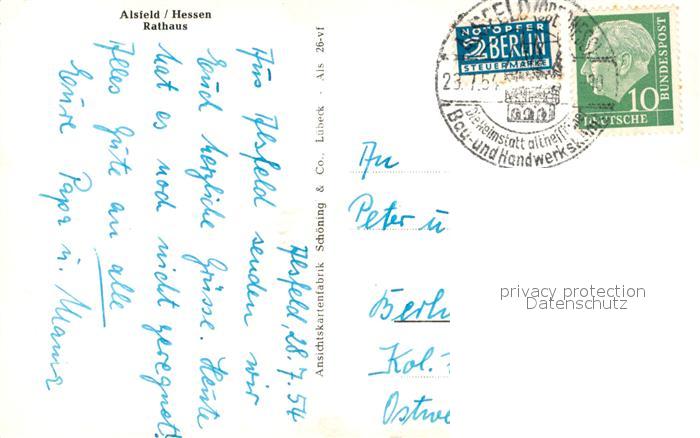 Alsfeld / Hessen
Rathaus
Alsfeld, 28.7.54
Aus Alsfeld senden wir
Euch herzliche Grüsse. Heute
hat es noch nicht geregnet!
Alles Gute an alle
Eure Papa u. Mama
Ansichtskartenfabrik Schöning & Co., Lübeck · Als 26-vf
NOTOPFER
2 BERLIN
STEUERMARKE
10
DEUTSCHE
BUNDESPOST
ALSFELD
23.7.54
Bau- und Handwerks
An
Peter u
Berl
Kol.-
Ostwe
privacy protection
Datenschutz